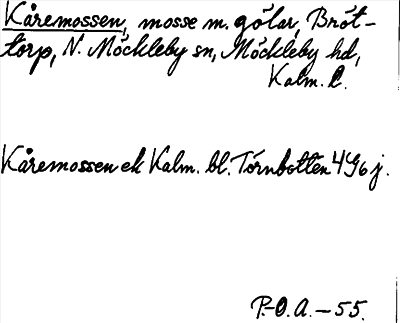 Kåremossen, mosse m. gölar, Bröt-
torp, N. Möckleby sn, Möckleby hd,
Kalm. l.
Kåremossen ek Kalm. bl. Törnbotten 4G6j.
P.-O.A. - 55.